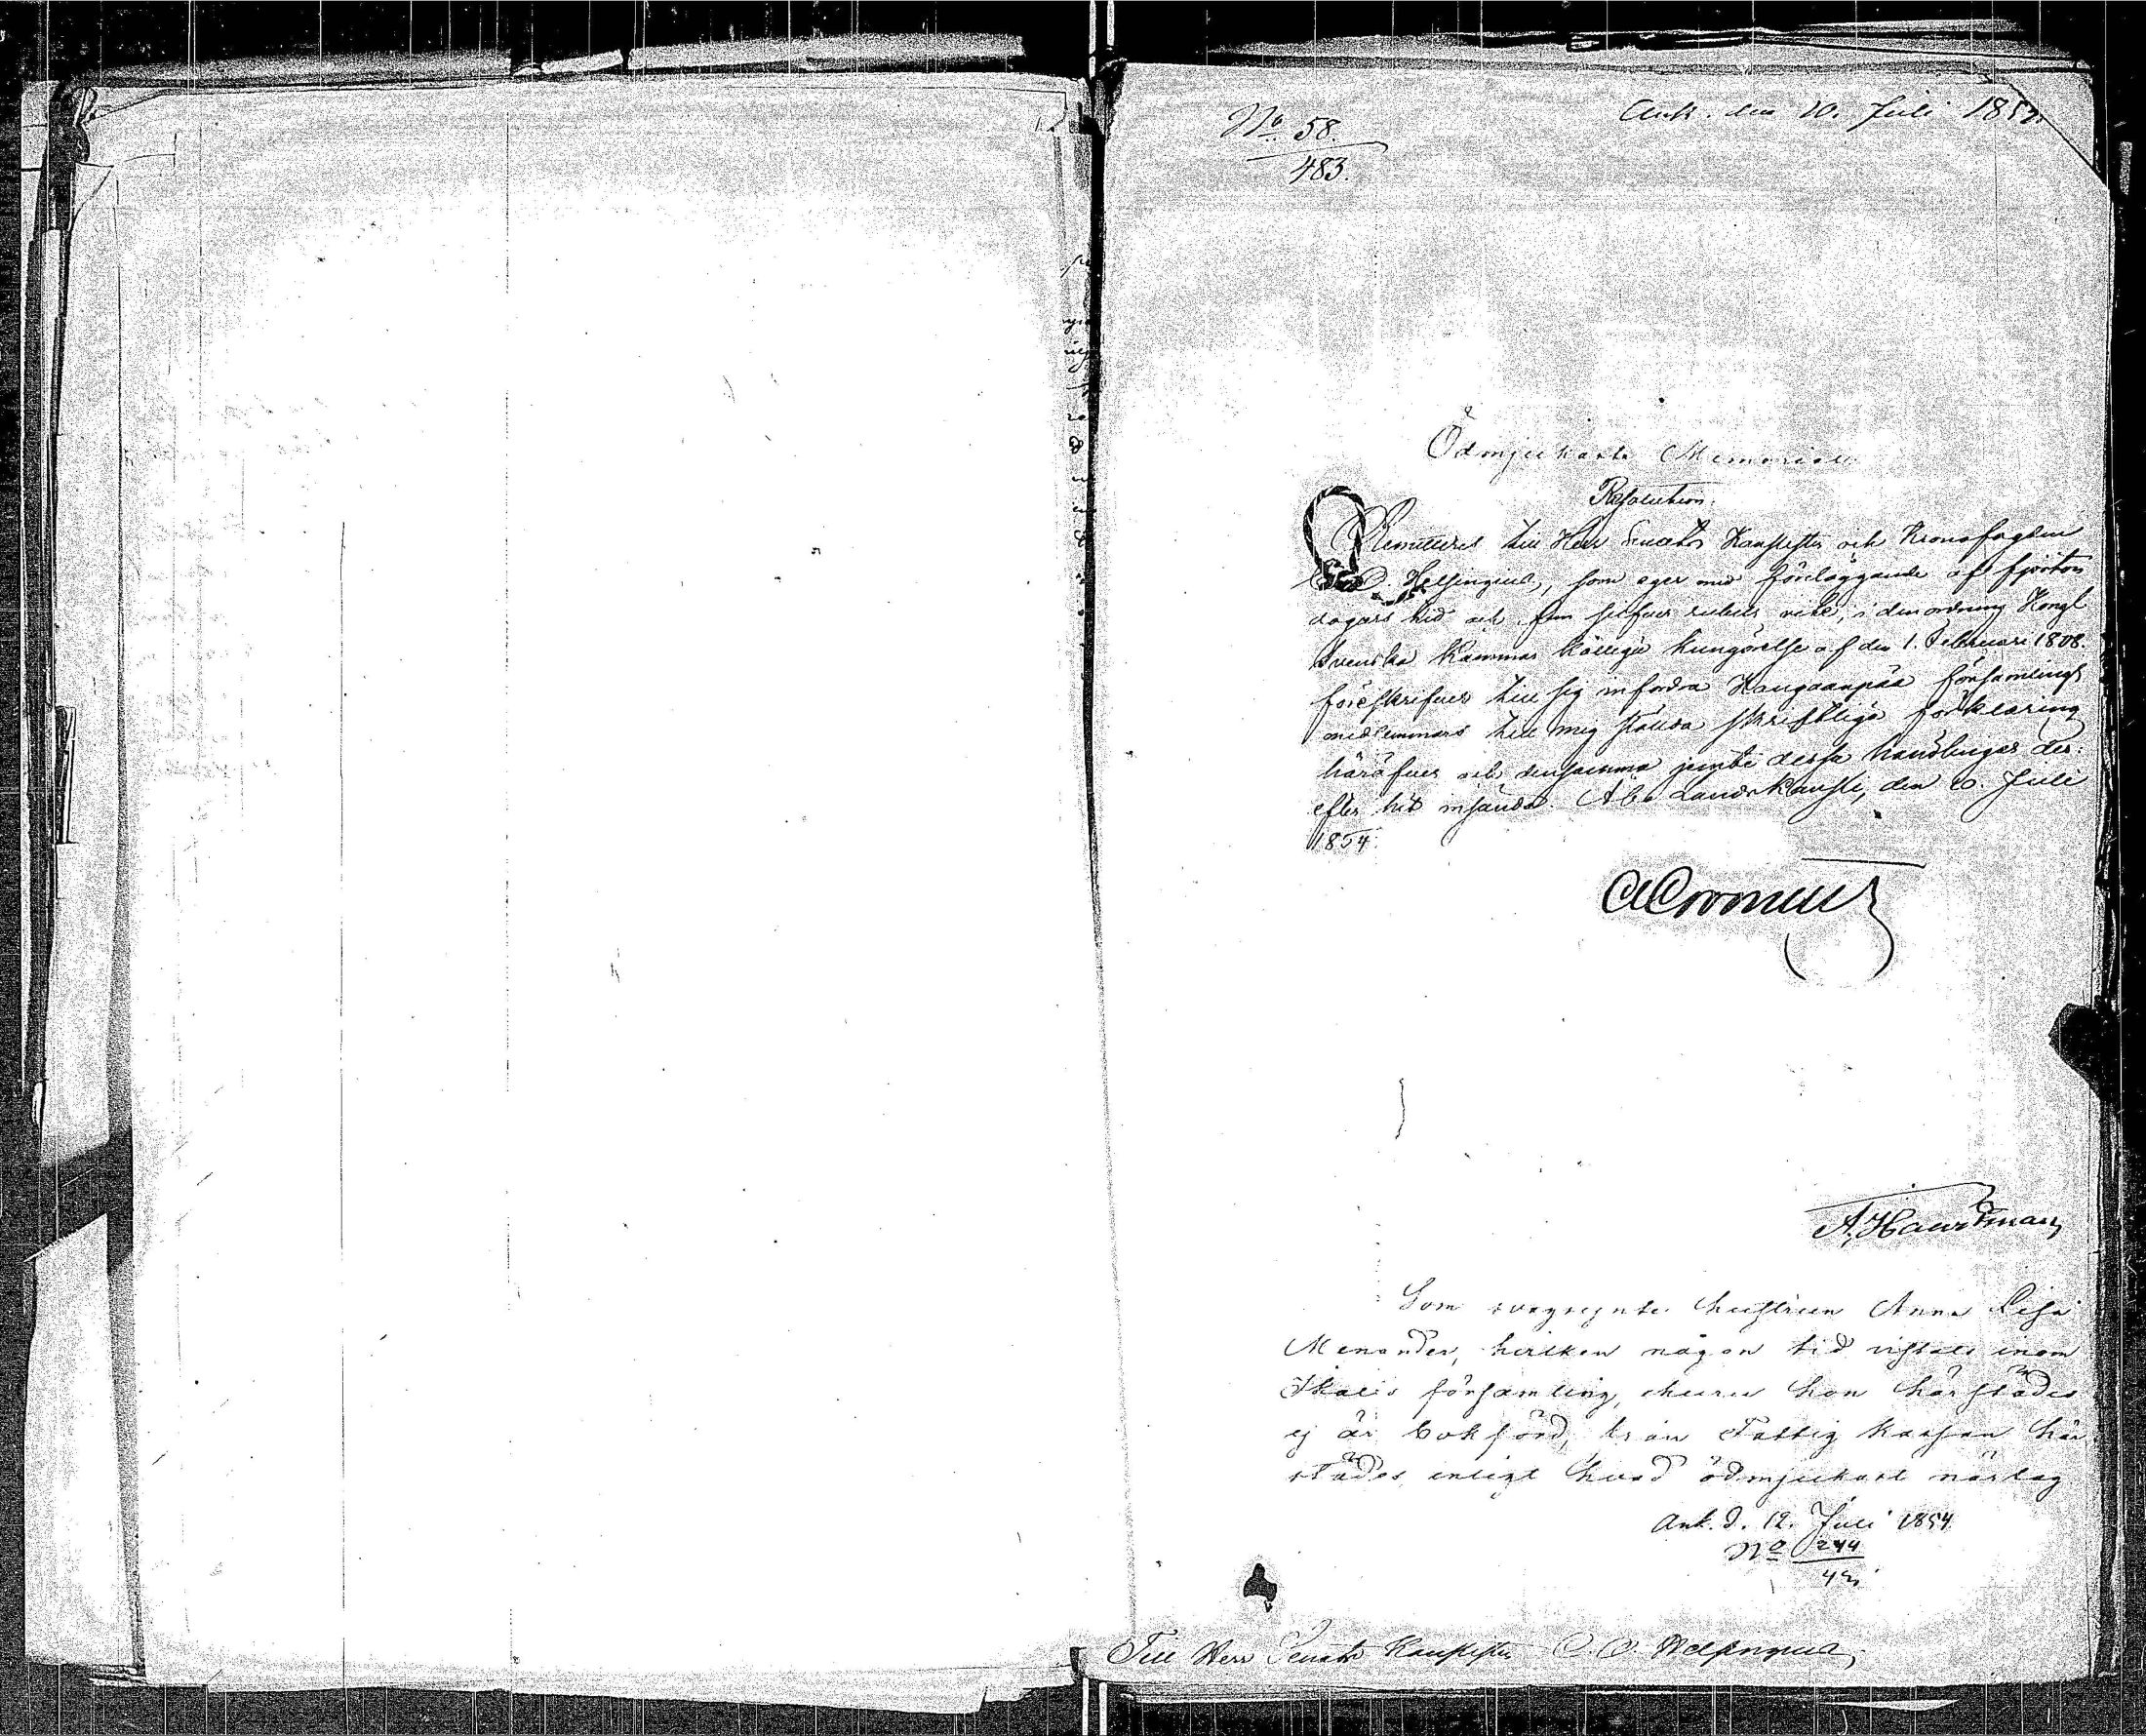 No 58.
483.
Ank. den 10. Juli 1854.
Ödmjukaste Memorial.
Resolution.
Remitteras till Herr Senats Kanslisten och Kronofogden
Helsingius, som eger med föreläggande af fjorton
dagars tid och fem silfver rubels vite, i den ordning Kongl
Svenska Kammar Kollegii kungörelse af den 1. Februari 1808.
föreskrifver till sig infordra Kangaanpää församlings
medlemmars till mig stälda skriftliga förklaring
häröfver och densamma jemte dessa handlingar der-
efter hit insända. Åbo Landskansli, den 10. Juli
1854.
A Cronstedt
A. Hartman
Som hustrun Anna Lisa
Menander, hvilken någon tid vistats inom
Ikalis församling, churu hon härstädes
ej är bokförd, från Fattig kassan här-
städes, enligt hvad ödmjukast närlag
Ank. d. 12. Juli 1854
No 244
Till Herr Senats Kanslisten C. O. Helsingius,